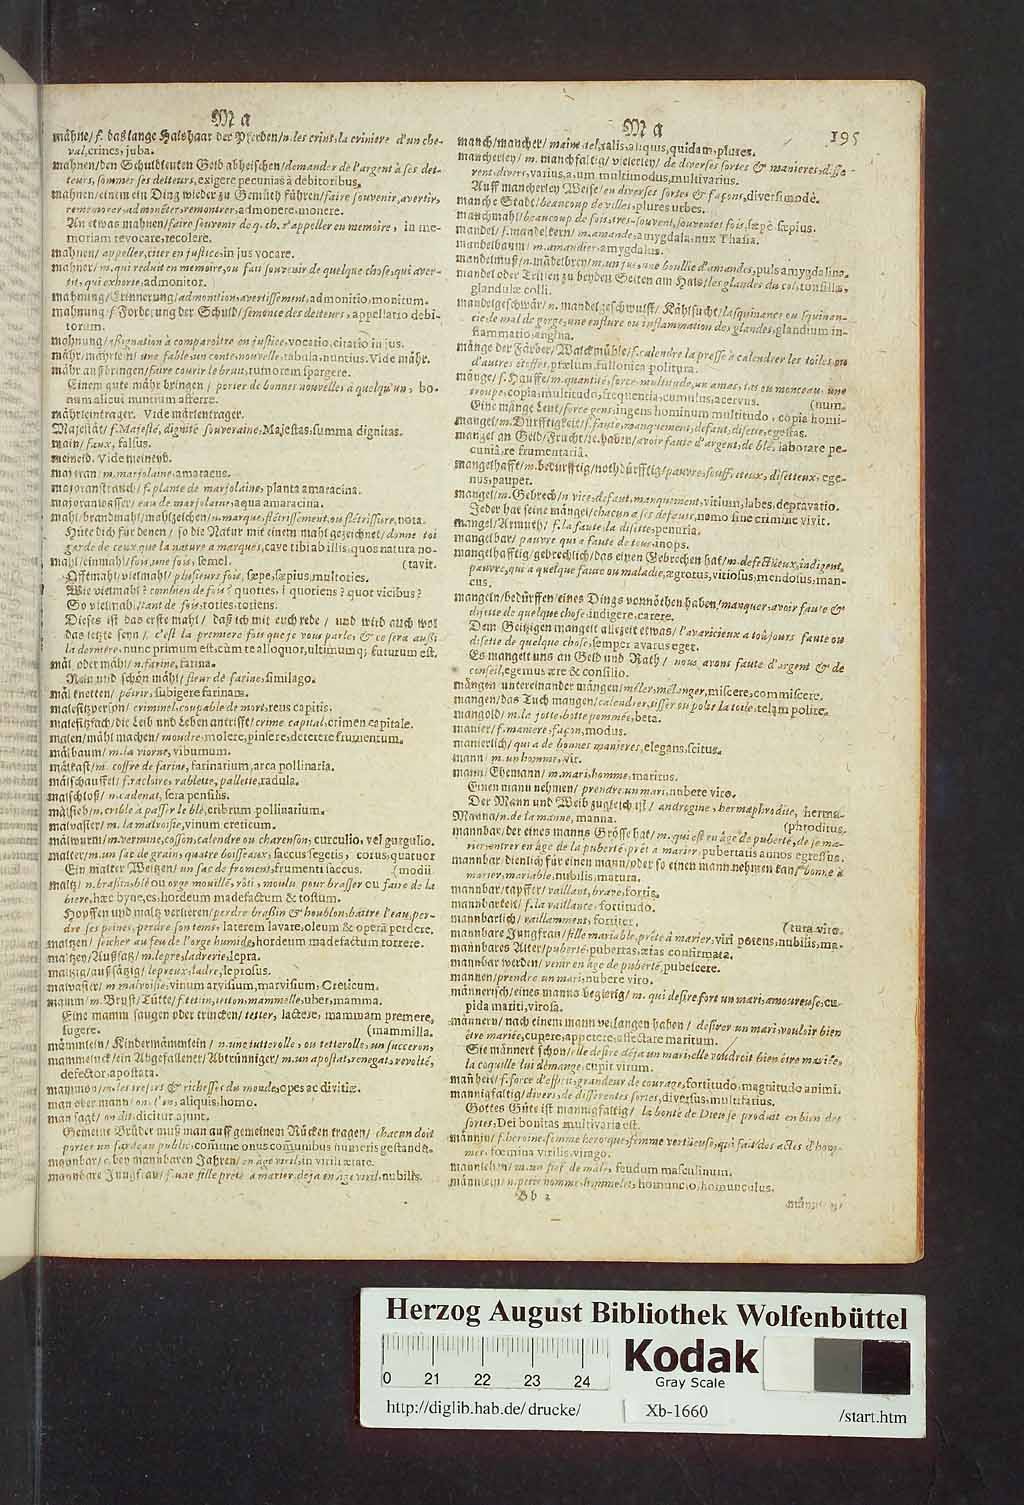 Ma
mähne/ f. das lange Halshaar der Pferden/ n. les crins, la criniere d'un che-
val, crines, juba.
mahnen/ den Schuldleuten Geld abheischen/ demander de l'argent à ses det-
teurs, sommer ses detteurs, exigere pecunias à debitoribus.
mahnen/ einem ein Ding wieder zu Gemüth führen/ faire souvenir, avertir,
rememorer, admonêter, remontrer, admonere, monere.
An etwas mahnen/ faire souvenir de q. ch. r'appeller en memoire, in me-
moriam revocare, recolere.
mahnen/ appeller, citer en justice, in jus vocare.
mahner/ m. qui reduit en memoire, ou fait souvenir de quelque chose, qui aver-
tit, qui exhorte, admonitor.
mahnung/ Erinnerung/ admonition, avertissement, admonitio, monitum.
mahnung/ f. Forderung der Schuld/ semonce des detteurs, appellatio debi-
torum.
mahnung/ assignation à comparoitre en justice, vocatio, citatio in jus.
mähr, mährlein/ une fable, un conte, nouvelle, fabula, nuntius. Vide mähr.
mähr außbringen/ faire courir le bruit, rumorem spargere.
Einem gute mähr bringen/ porter de bonnes nouvelles à quelqu'un, bo-
num alicui nuntium afferre.
mährleinträger. Vide märleinträger.
Majestät/ f. Majesté, dignité souveraine, Majestas, summa dignitas.
main/ faux, falsus.
meineid. Vide meineyd.
majoran/ m. marjolaine, amaracus.
majoranstrauch/ f. plante de marjolaine, planta amaracina.
majoranwasser/ eau de marjolaine, aqua amaracina.
mahl/ brandmahl/ mahlzeichen/ n. marque, flétrissement, ou flétrissure, nota.
Hüte dich für denen/ so die Natur mit einem mahl gezeichnet/ donne toi
garde de ceux que la nature a marqués, cave tibi ab illis, quos natura no-
mahl/ einmahl/ fois, une fois, semel. (tavit.
Offtmahl/ vielmahl/ plusieurs fois, sæpe, sæpius, multoties.
Wie vielmahl? combien de fois? quoties, quotiens? quot vicibus?
So vielmahl/ tant de fois, toties, totiens.
Dieses ist das erste mahl/ daß ich mit euch rede/ und wird auch wol
das letzte seyn/ c'est la premiere fois que je vous parle, & ce sera aussi
la derniere, nunc primum est, cùm te alloquor, ultimumq; futurum est.
mäl oder mähl/ n. farine, farina.
Rein und schön mähl/ fleur de farine, similago.
mäl knetten/ pétrir, subigere farinam.
malefitzperson/ criminel, coupable de mort, reus capitis.
malefitzsach/ die Leib und Leben antrifft/ crime capital, crimen capitale.
malen/ mähl machen/ moudre, molere, pinsere, deterere frumentum.
mälbaum/ m. la viorne, viburnum.
mälkast/ m. coffre de farine, farinarium, arca pollinaria.
mälschauffel/ f. racloire, rablette, pallette, radula.
malschloß/ n. cadenat, sera pensilis.
mälsieb/ n. crible à passer le blé, cribrum pollinarium.
malvasier/ m. la malvoisie, vinum creticum.
mälwurm/ m. vermine, cosson, calendre ou charenson, curculio, vel gurgulio.
malter/ m. un sac de grain, quatre boisseaux, saccus segetis, corus, quatuor
Ein malter Weitzen/ un sac de froment, frumenti saccus. (modii
maltz/ n. brassin, blé ou orge mouillé, rôti, moulu pour brasser ou faire de la
biere, hæc byne, es, hordeum madefactum & tostum.
Hopffen und maltz verlieren/ perdre brassin & houblon, bâttre l'eau, per-
dre ses peines, perdre son tems, laterem lavare, oleum & operam perdere.
maltzen/ seicher au feu de l'orge humide, hordeum madefactum torrere.
maltzey/ Aussatz/ m. lepre, ladrerie, lepra.
maltzig/ aussätzig/ lepreux, ladre, leprosus.
malvasier/ m. malvoisie, vinum arvisium, marvisium, Creticum.
mamm/ m. Brust/ Tütte/ f. tetin, tetton, mammelle, uber, mamma.
Eine mamm saugen oder trincken/ tetter, lactere, mammam premere,
sugere. (mammilla.
mämmlein/ Kindermämmlein/ n. une tutterolle, ou tetterolle, un succeron,
mammelnck/ ein Abgefallener/ Abtrünniger/ m. un apostat, renegat, revolté,
defector, apostata.
mammon/ m. les tresors & richesses du monde, opes ac divitiæ.
man ober mann/ on, l'on, aliquis, homo.
man sagt/ on dit, dicitur, ajunt.
Gemeine Bruder muß man auff gemeinem Rücken tragen/ chacun doit
porter un fardeau public, com̃une onus com̃unibus humeris gestandũ.
mannbar/ c. bey mannbaren Jahren/ en âge viril, in virili ætate.
mannbare Jungfrau/ f. une fille prête à marier, déja en âge viril, nubilis.
Ma
195
manch/ mancher/ maint, tel, talis, aliquis, quidam, plures.
mancherley/ m. manchfaltig/ vielerley/ de diverses sortes & manieres, diffe-
rent, divers, varius, a, um, multimodus, multivarius.
Auff mancherley Weise/ en diverses sortes & façons, diversimodè.
manche Stadt/ beaucoup de villes, plures urbes.
manchmahl/ beaucoup de fois, tres-souvent, souventes fois, sæpè, sæpius.
mandel/ f. mandelkern/ m. amande, amygdala, nux Thasia.
mandelbaum/ m. amandier, amygdalus.
mandelmuß/ n. mãdelbrey/ m. un jus, une boullie d'amandes, puls amygdalina.
mandel oder Drüsen zu beyden Seiten am Hals/ les glandes du col, tonsillæ,
glandulæ colli.
mandelgeschwär/ n. mandelgeschwulst/ Kählsucht/ la squinance ou squinan-
cie, le mal de gorge, une enflure ou inflammation des glandes, glandium in-
flammatio, angina.
mänge der Färber/ Walckmühle/ f. calendre, la presse à calendrer les toiles ou
d'autres étoffes, prælum, fullonica politura.
mänge/ f. Hauffe/ m. quantité, force, multitude, un amas, tas ou monceau, une
troupe, copia, multitudo, frequentia, cumulus, acervus. (num.
Eine mänge Leut/ force gens, ingens hominum multitudo, copia homi-
mangel/ m. Dürfftigkeit/ f. faute, manquement, defaut, disette, egestas.
mangel an Geld/ Frucht/ ꝛc. haben/ avoir faute d'argent, de blé, laborare pe-
cuniâ, re frumentariâ.
mangelhafft/ m. bedürfftig/ nothdürfftig/ pauvre, souffreteux, disetteux, ege-
nus, pauper.
mangel/ m. Gebrech/ n. vice, defaut, manquement, vitium, labes, depravatio.
Jeder hat seine mängel/ chacun a ses defauts, nemo sine crimine vivit.
mangel/ Armuth/ f. la faute, la disette, penuria.
mangelbar/ pauvre qui a faute de tout, inops.
mangelhafftig/ gebrechlich/ das einen Gebrechen hat/ m. defectueux, indigent,
pauvre, qui a quelque faute ou maladie, ægrotus, vitiosus, mendosus, man-
cus.
mangeln/ bedürffen/ eines Dings vonnöthen haben/ manquer, avoir faute &
disette de quelque chose, indigere, carere.
Dem Geitzigen mangelt allezeit etwas/ l'avaricieux a toûjours faute ou
disette de quelque chose, semper avarus eget.
Es mangelt uns an Geld und Rath/ nous avons faute d'argent & de
conseil, egemus ære & consilio.
mängen, untereinander mängen/ méler, mélanger, miscere, commiscere.
mangen/ das Tuch mangen/ calendrer, lisser ou polir la toile, telam polire.
mangold/ m. la jotte, botte pommée, beta.
manier/ f. maniere, façon, modus.
manierlich/ qui a de bonnes manieres, elegans, scitus.
mann/ m. un homme, vir.
mann/ Ehemann/ m. mari, homme, maritus.
Einen mann nehmen/ prendre un mari, nubere viro.
Der Mann und Weib zugleich ist/ androgine, hermaphrodite, herma-
Manna/ n. de la manne, manna. (phroditus.
mannbar/ der eines manns Grösse hat/ m. qui est en âge de puberté, de se ma-
rier, entrer en âge de la puberté, prêt à marier, pubertatis annos egressus.
mannbar, dienlich für einen mann/ oder so einen mann nehmen kan/ bonne à
marier, mariable, nubilis, matura.
mannbar/ tapffer/ vaillant, brave, fortis.
mannbarkeit/ f. la vaillance, fortitudo.
mannbarlich/ vaillamment, fortiter. (tura viro.
mannbare Jungfrau/ fille mariable, prête à marier, viri potens, nubilis, ma-
mannbares Alter/ puberté, pubertas, ætas confirmata.
mannbar werden/ venir en âge de puberté, pubescere.
mannen/ prendre un mari, nubere viro.
männerisch/ eines manns begierig/ m. qui desire fort un mari, amoureuse, cu-
pida mariti, virosa.
männern/ nach einem mann verlangen haben/ desirer un mari, vouloir bien
étre mariée, cupere, appetere, affectare maritum.
Sie männert schon/ elle desire déja un mari, elle voudroit bien étre mariée,
la coquille lui démange, cupit virum.
mañheit/ f. force d'esprit, grandeur de courage, fortitudo, magnitudo animi.
mannigfaltig/ divers, de differentes sortes, diversus, multifarius.
Gottes Güte ist mannigfaltig/ la bonté de Dieu se produit en bien des
sortes, Dei bonitas multivaria est.
männin/ f. heroine, femme heroïque, femme vertueuse, qui fait des actes d'hom-
me, fœmina virilis, virago.
mannlehen/ m. un fief de mâle, feudum masculinum.
männlein/ n. petit homme, hommelet, homuncio, homunculus.
Bb 2
Herzog August Bibliothek Wolfenbüttel
0 21 22 23 24
Kodak
Gray Scale
http://diglib.hab.de/drucke/ Xb-1660 /start.htm